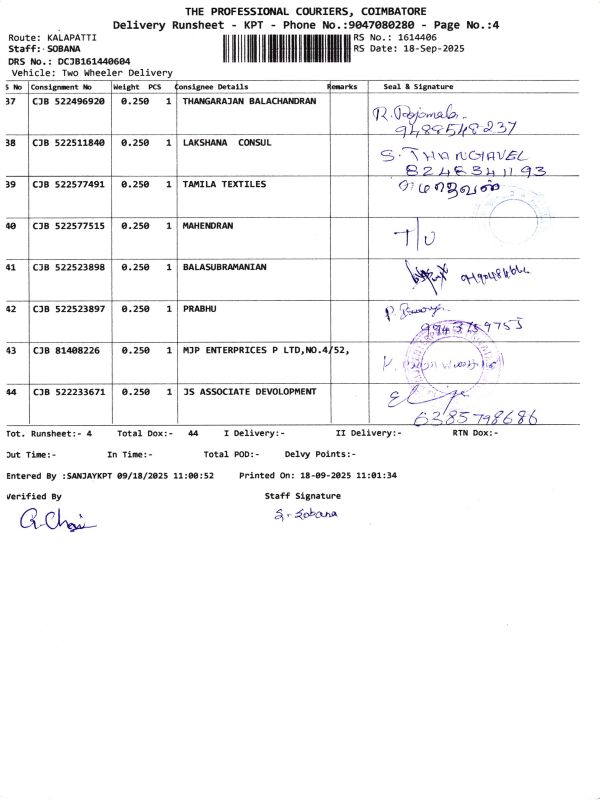 THE PROFESSIONAL COURIERS, COIMBATORE
Delivery Runsheet - KPT - Phone No.:9047080280 - Page No.:4
Route: KALAPATTI RS No.: 1614406
Staff: SOBANA RS Date: 18-Sep-2025
DRS No.: DCJB161440604
Vehicle: Two Wheeler Delivery
S No Consignment No Weight PCS Consignee Details Remarks Seal & Signature
37 CJB 522496920 0.250 1 THANGARAJAN BALACHANDRAN
9488548237
38 CJB 522511840 0.250 1 LAKSHANA CONSUL S. THANGAVEL
8248341193
39 CJB 522577491 0.250 1 TAMILA TEXTILES
40 CJB 522577515 0.250 1 MAHENDRAN T/U
41 CJB 522523898 0.250 1 BALASUBRAMANIAN
42 CJB 522523897 0.250 1 PRABHU
43 CJB 81408226 0.250 1 MJP ENTERPRICES P LTD,NO.4/52,
44 CJB 522233671 0.250 1 JS ASSOCIATE DEVOLOPMENT
6385798686
Tot. Runsheet:- 4 Total Dox:- 44 I Delivery:- II Delivery:- RTN Dox:-
Out Time:- In Time:- Total POD:- Delvy Points:-
Entered By :SANJAYKPT 09/18/2025 11:00:52 Printed On: 18-09-2025 11:01:34
Verified By Staff Signature
S. Sobana